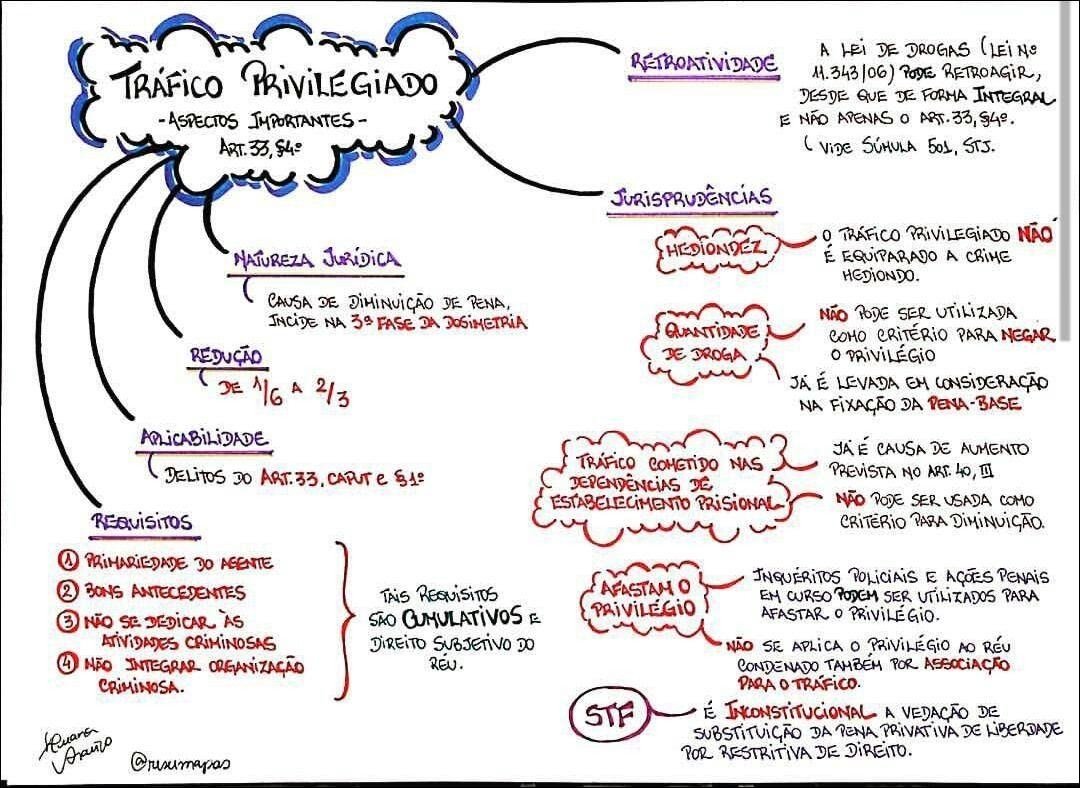 TRÁFICO PRIVILEGIADO
- ASPECTOS IMPORTANTES -
ART. 33, §4º
NATUREZA JURÍDICA
CAUSA DE DIMINUIÇÃO DE PENA,
INCIDE NA 3ª FASE DA DOSIMETRIA
REDUÇÃO
DE 1/6 A 2/3
APLICABILIDADE
DELITOS DO ART. 33, CAPUT E §1º
REQUISITOS
1 PRIMARIEDADE DO AGENTE
2 BONS ANTECEDENTES
3 NÃO SE DEDICAR ÀS
ATIVIDADES CRIMINOSAS
4 NÃO INTEGRAR ORGANIZAÇÃO
CRIMINOSA.
TAIS REQUISITOS
SÃO CUMULATIVOS E
DIREITO SUBJETIVO DO
RÉU.
RETROATIVIDADE
A LEI DE DROGAS (LEI Nº
11.343/06) PODE RETROAGIR,
DESDE QUE DE FORMA INTEGRAL
E NÃO APENAS O ART. 33, §4º.
VIDE SÚMULA 501, STJ.
JURISPRUDÊNCIAS
HEDIONDEZ
O TRÁFICO PRIVILEGIADO NÃO
É EQUIPARADO A CRIME
HEDIONDO.
QUANTIDADE
DE DROGA
NÃO PODE SER UTILIZADA
COMO CRITÉRIO PARA NEGAR
O PRIVILÉGIO
JÁ É LEVADA EM CONSIDERAÇÃO
NA FIXAÇÃO DA PENA-BASE
TRÁFICO COMETIDO NAS
DEPENDÊNCIAS DE
ESTABELECIMENTO PRISIONAL
JÁ É CAUSA DE AUMENTO
PREVISTA NO ART. 40, III
NÃO PODE SER USADA COMO
CRITÉRIO PARA DIMINUIÇÃO.
AFASTAM O
PRIVILÉGIO
INQUÉRITOS POLICIAIS E AÇÕES PENAIS
EM CURSO PODEM SER UTILIZADOS PARA
AFASTAR O PRIVILÉGIO.
NÃO SE APLICA O PRIVILÉGIO AO RÉU
CONDENADO TAMBÉM POR ASSOCIAÇÃO
PARA O TRÁFICO.
STF
É INCONSTITUCIONAL A VEDAÇÃO DE
SUBSTITUIÇÃO DA PENA PRIVATIVA DE LIBERDADE
POR RESTRITIVA DE DIREITO.